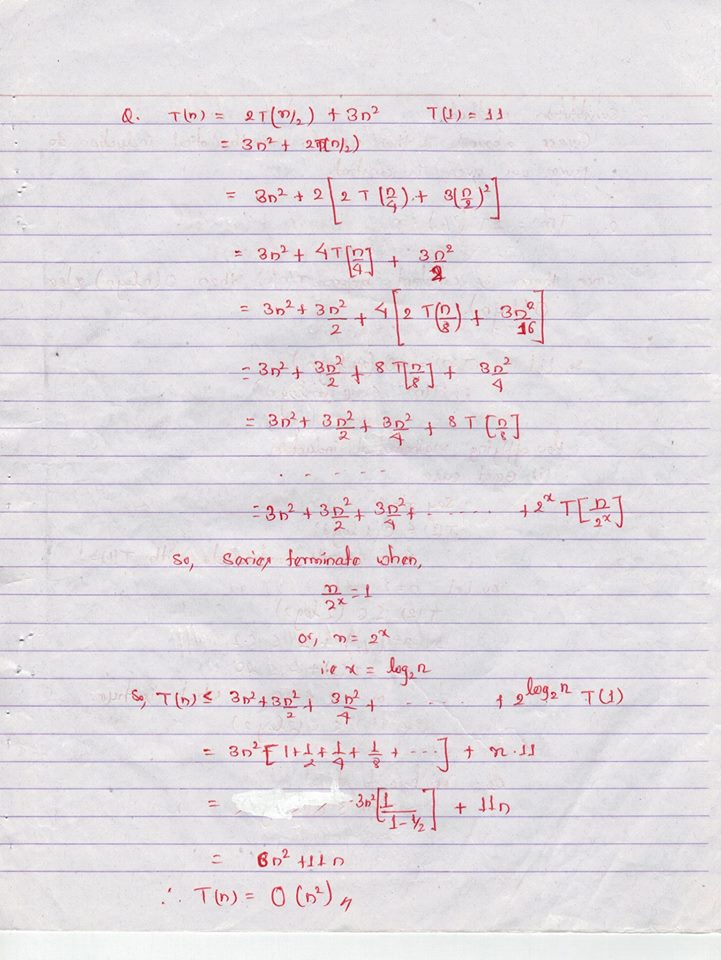 Q. T(n) = 2T(n/2) + 3n² T(1) = 11
= 3n² + 2T(n/2)
= 3n² + 2[2T(n/4) + 3(n/2)²]
= 3n² + 4T[n/4] + 3n²/2
= 3n² + 3n²/2 + 4[2T(n/8) + 3n²/16]
= 3n² + 3n²/2 + 8T[n/8] + 3n²/4
= 3n² + 3n²/2 + 3n²/4 + 8T[n/8]
. . . . .
= 3n² + 3n²/2 + 3n²/4 + . . . . . . + 2ˣ T[n/2ˣ]
So, series terminate when,
n/2ˣ = 1
or, n = 2ˣ
i.e x = log₂n
So, T(n) ≤ 3n² + 3n²/2 + 3n²/4 + . . . . . . + 2^(log₂n) T(1)
= 3n² [1 + 1/2 + 1/4 + 1/8 + ...] + n.11
= 3n² [1/(1-1/2)] + 11n
= 6n² + 11n
∴ T(n) = O(n²)